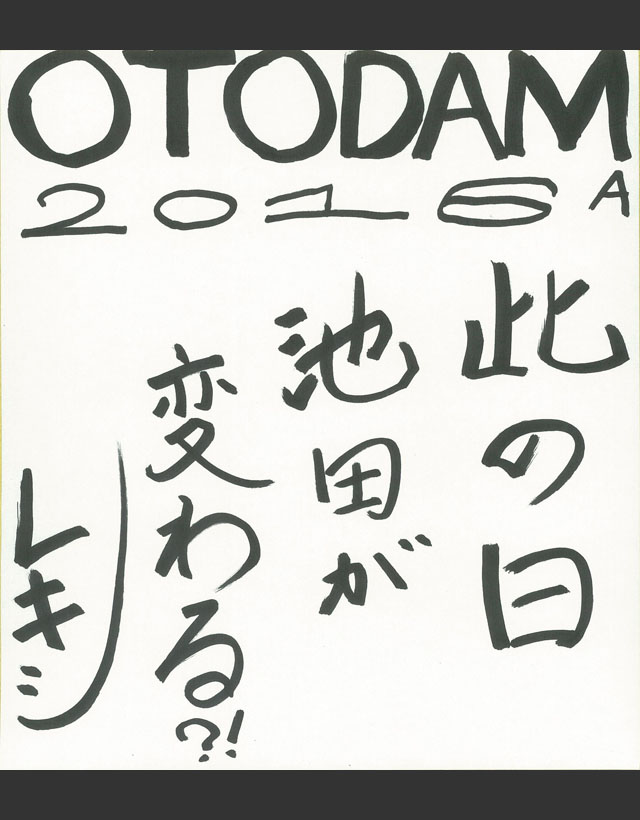 OTODAM
2016 A
此の日
池田が
変わる?!
レキシ